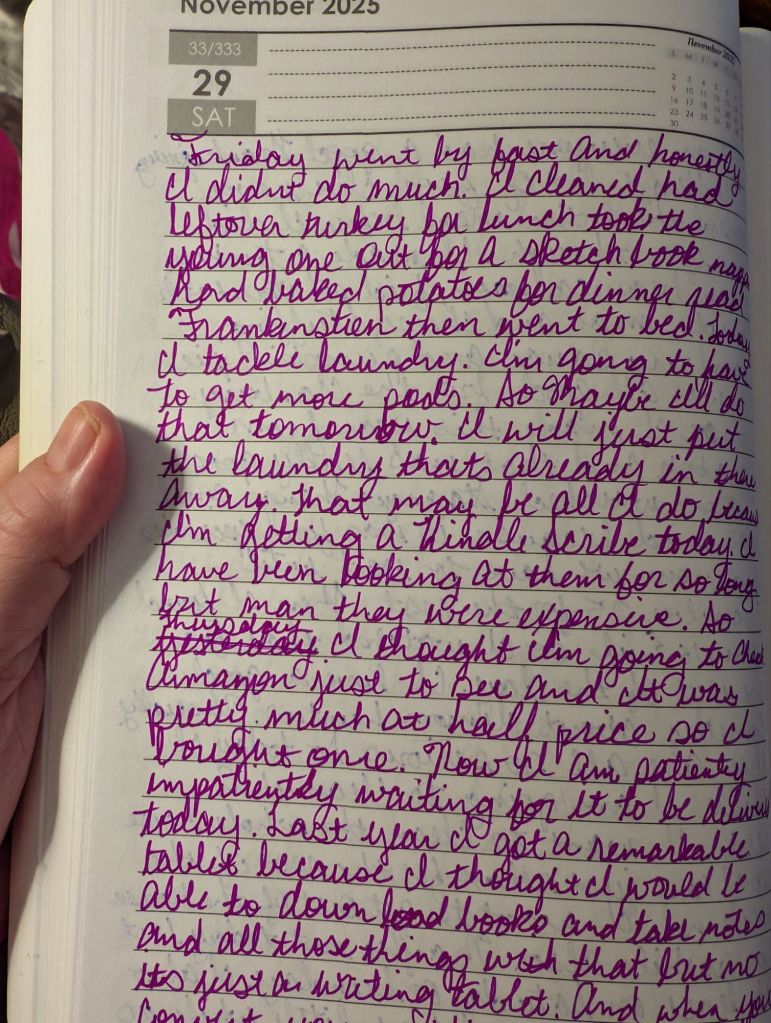 November 2025
33/333
29
SAT
November 2025
S M T W
2 3 4 5
9 10 11 12
16 17 18 19
23 24 25 26
30
Friday went by fast and honestly
I didnt do much. I cleaned had
leftover turkey for lunch took the
young one out for a sketch book
had baked potatoes for dinner read
Frankinstien then went to bed. Today
I tackle laundry. Im going to have
to get more pods. So maybe Ill do
that tomorrow. I will just put
the laundry thats already in there
away. That may be all I do becaus
Im getting a Kindle Scribe today. I
have been looking at them for so long
but man they were expensive. So
Thursday
yesterday I thought Im going to check
Amazon just to see and it was
pretty much at half price so I
bought once. Now I am patienty
impatiently waiting for it to be deliver
today. Last year I got a remarkable
tablet because I thought I would be
able to down load books and take notes
and all those things with that but no
its just a writing tablet. And when you